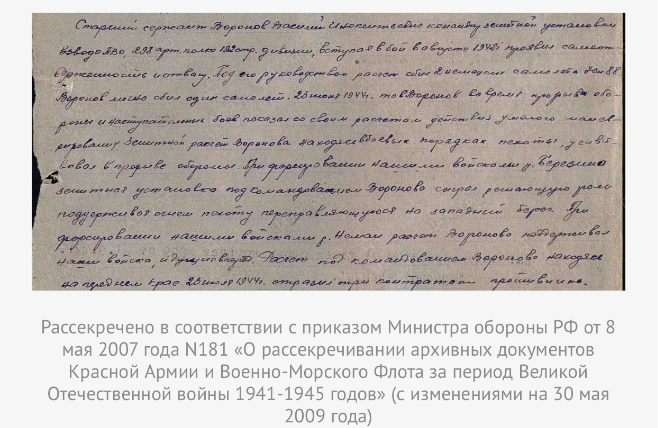 Старший сержант Воронов Василий Инокентьевич командир зенитной установки
взвода ПВО, 293 арт. полка 192 стр. дивизии, вступая в бой в августе 1942г проявил самоот-
верженность и отвагу. Под его руководством расчет сбил 2 немецких самолета Ю-88
Воронов лично сбил один самолет. 23 июня 1944г. тов Воронов во время прорыва обо-
роны и наступательных боях показал со своим расчетом действия умелого манев-
рирования Зенитный расчет Воронова находясь в боевых порядках пехоты, участ-
вовал в прорыве обороны. При форсировании нашими войсками р. Березина
зенитная установка под командованием Воронова сыграла решающую роль
поддерживая огнем пехоту переправляющуюся на западный берег. При
форсировании нашими войсками р. Неман расчет Воронова поддерживал
наши войска, идущие вперед. Расчет под командованием Воронова находясь
на переднем крае 25 июля 1944г. отразил три контратаки противника.
Рассекречено в соответствии с приказом Министра обороны РФ от 8
мая 2007 года N181 «О рассекречивании архивных документов
Красной Армии и Военно-Морского Флота за период Великой
Отечественной войны 1941-1945 годов» (с изменениями на 30 мая
2009 года)